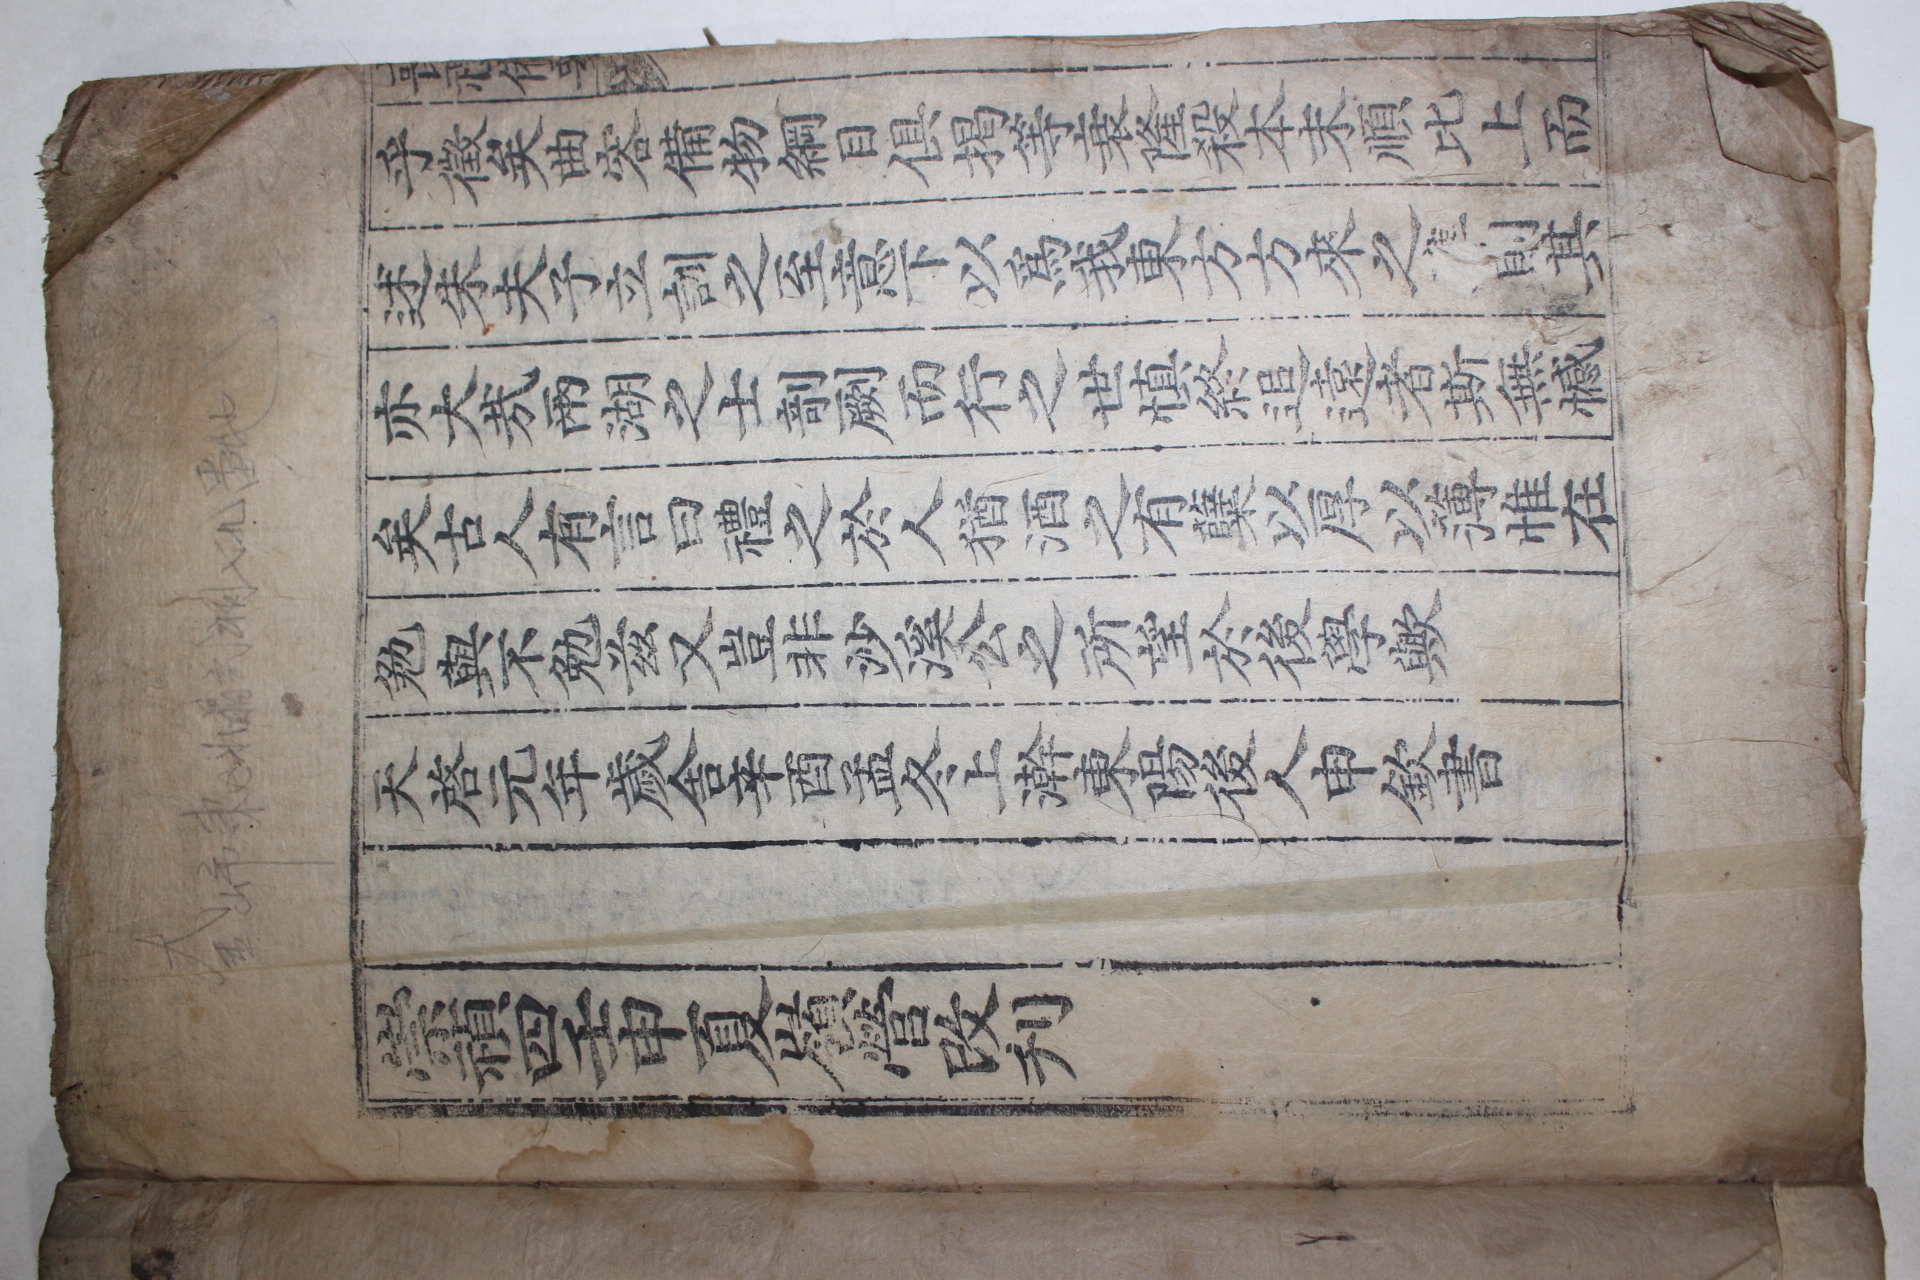 喪禮備要
乎徵矣曲容備物綱目俱揭等衰隆殺本末順比上而
述朱夫子立訓之至意下以爲我東方方來之準則其
亦大㢤兩湖之士剞劂而行之世愼終追遠者斯無憾
矣古人有言曰禮之於人猶酒之有糵以厚以薄惟在
勉與不勉茲又豈非沙溪公之所望於後學歟
天啓元年歲舍辛酉孟冬上澣東陽後人申欽書
崇禎四壬申夏嶺營改刊